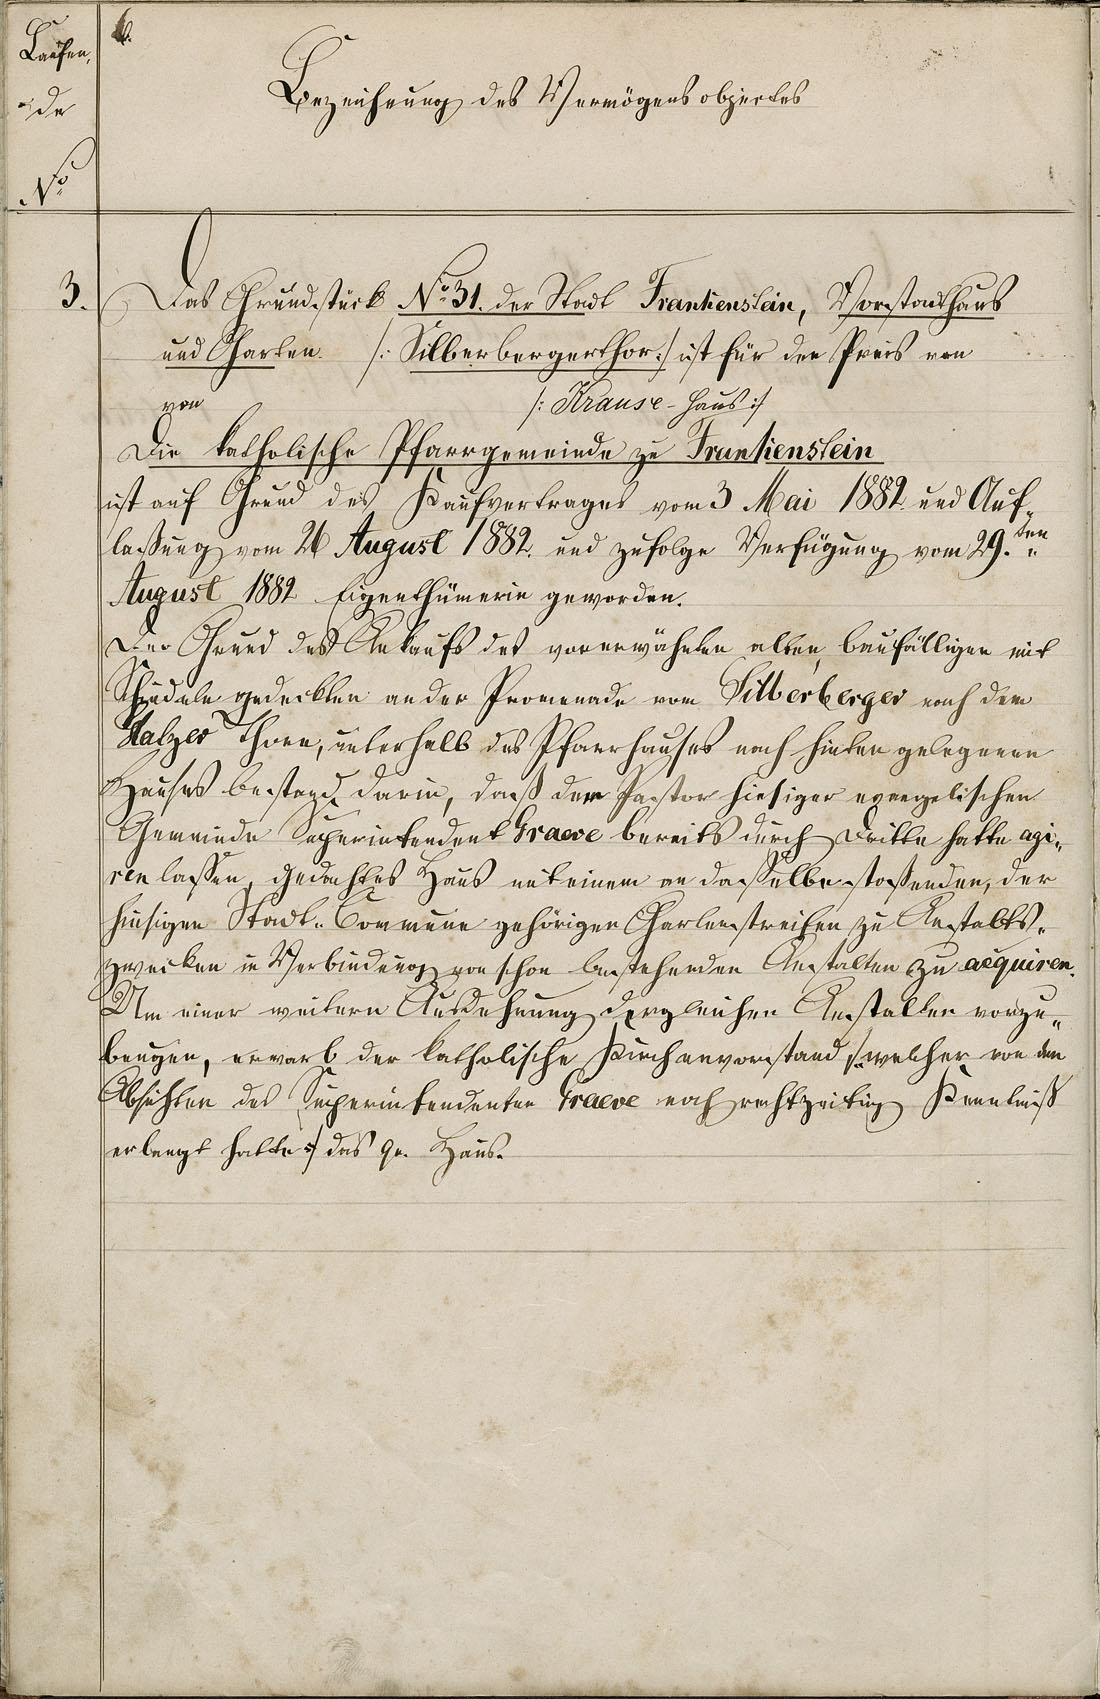 Laufen,
de
No
6.
Bezeichnung des Vermögensobjectes
3.
Das Grundstück No 31. der Stadt Frankenstein, Vorstadthaus
und Garten. /: Silberbergerthor :/ ist für den Preis von
von /: Krause-Haus :/
Die katholische Pfarrgemeinde zu Frankenstein
ist auf Grund des Kaufvertrages vom 3 Mai 1882 und Auf-
laßung vom 26 August 1882. und zufolge Verfügung vom 29. ten
August 1882 Eigenthümerin geworden.
Der Grund des Ankaufs des vorerwähnten alten, baufälligen mit
Schindeln gedeckten an der Promenade vom Silberberger nach dem
Glatzer Thore, unterhalb des Pfarrhauses nach hinten gelegenen
Hauses bestand darin, daß der Pastor hiesiger evangelischen
Gemeinde Superintendent Graeve bereits durch Dritte hatte agi-
ren laßen, gedachtes Haus mit einem an daßelbe stoßenden, der
hiesigen Stadt-Commune gehörigen Gartenstreifen zu Anstalts-
zwecken in Verbindung von schon bestehenden Anstalten zu acquiren.
Um einer weitern Ausdehnung dergleichen Anstalten vorzu-
beugen, erwarb der katholische Kirchenvorstand /: welcher von den
Absichten des Superintendenten Graeve noch rechtzeitig Kenntniß
erlangt hatte :/ das qu. Haus.